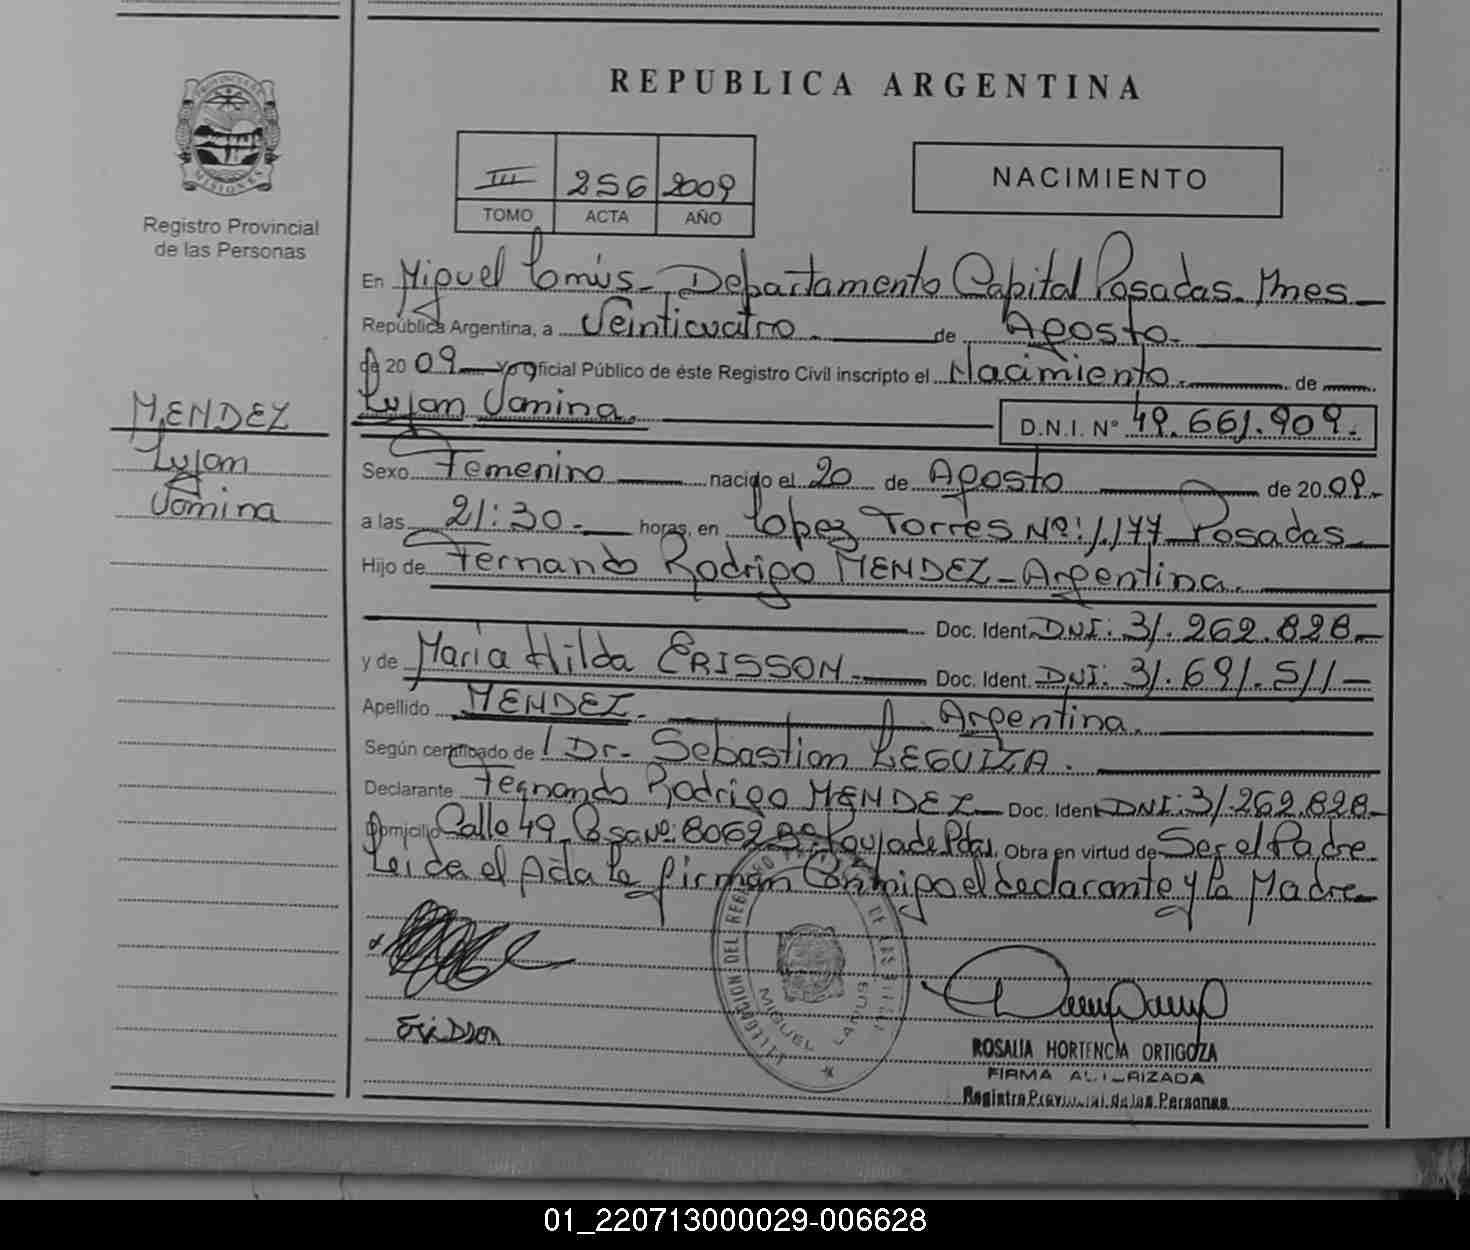 REPUBLICA ARGENTINA
PROVINCIA DE
MISIONES
Registro Provincial
de las Personas
III 256 2009
TOMO ACTA AÑO
NACIMIENTO
En Miguel Lanús - Departamento Capital Posadas - Mnes -
República Argentina, a Veinticuatro de Agosto.
de 20 09 yo oficial Público de éste Registro Civil inscripto el Nacimiento. de
Lujan Yanina. D.N.I. Nº 49.661.909.
MENDEZ
Lujan
Yanina
Sexo Femenino nacido el 20 de Agosto de 20 09.-
a las 21:30.- horas, en Lopez Torres Nº: 1.177 Posadas -
Hijo de Fernando Rodrigo MENDEZ - Argentina.
Doc. Ident. DNI: 31.262.828 -
y de Maria Hilda ERISSON. Doc. Ident. DNI: 31.691.511 -
Apellido MENDEZ. Argentina.
Según certificado de Dr. Sebastian LEGUIZA.
Declarante Fernando Rodrigo MENDEZ - Doc. Ident. DNI: 31.262.828 -
Domicilio Calle 49 Casa Nº: 8062 Bº Obra en virtud de Ser el Padre
Leida el Acta la firman Conmigo el declarante y la Madre -
DELEGACION DEL REGISTRO DE LAS
MIGUEL LANUS
ROSALIA HORTENCIA ORTIGOZA
FIRMA AUTORIZADA
Registro Provincial de las Personas
01_220713000029-006628